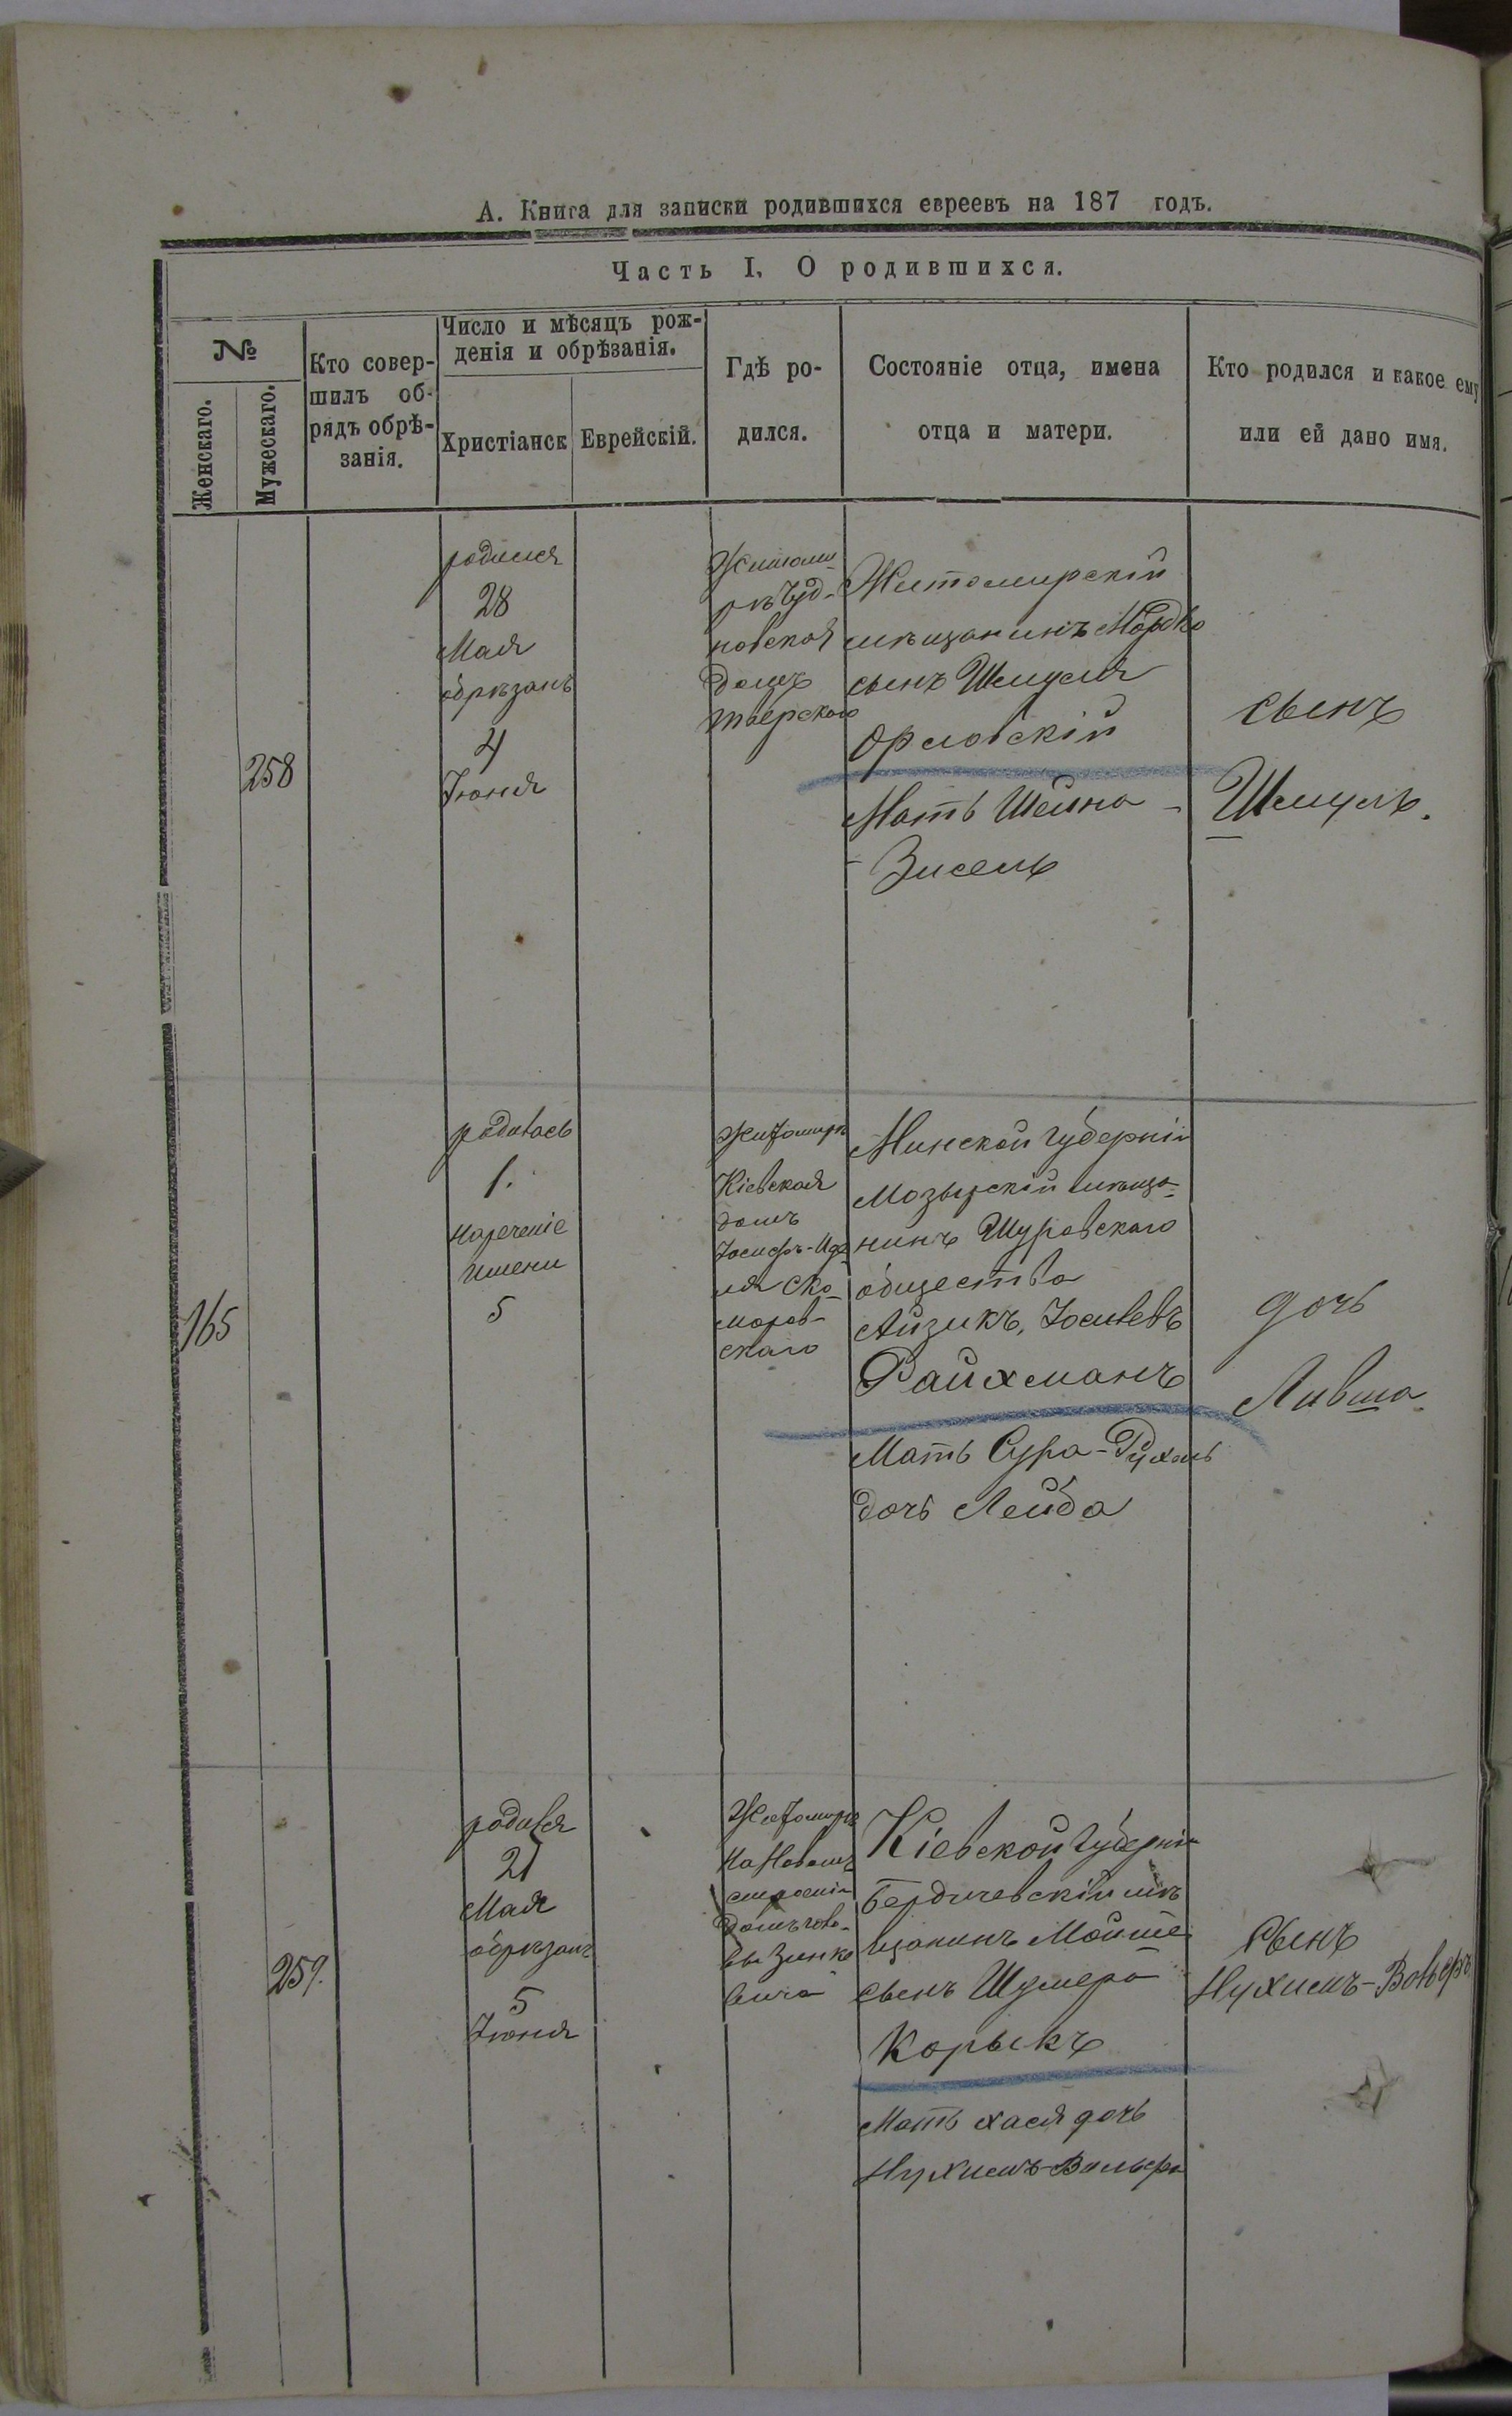 А. Книга для записки родившихся евреевъ на 187 годъ.
Часть I. О родившихся.
№
Женскаго.
Мужескаго.
Кто совер-
шилъ об-
рядъ обрѣ-
занія.
Число и мѣсяцъ рож-
денія и обрѣзанія.
Христіанск
Еврейскій.
Гдѣ ро-
дился.
Состояніе отца, имена
отца и матери.
Кто родился и какое ему
или ей дано имя.
258
родился
28
Мая
обрѣзанъ
4
Іюня
Житоми-
ръ Чуд-
новская
домъ
Тверского
Житомирскій
мѣщанинъ Мордко
сынъ Шмуля
Орловскій
Мать Шейна -
- Зисель
сынъ
Шмуль.
165
родилась
1.
нареченіе
имени
5
Житомиръ
Кіевская
домъ
Іосифъ-Иде
ля Ско-
моров-
скаго
Минской губерніи
Мозырскій мѣща-
нинъ Шуровскаго
общества
Айзикъ, Іосивевъ
Райхманъ
Мать Сура-Рухль
дочь Лейба
дочь
Ливша
259.
родился
21
Мая
обрѣзанъ
5
Іюня
Житомиръ
На Новомъ
строеніи
домъ
Зинке
вича
Кіевской губерніи
Бердичевскій мѣ
щанинъ Мойше
сынъ Шумера
Корыкъ
Мать Хася дочь
Нухимъ-Вольфа
сынъ
Нухимъ-Вольфъ